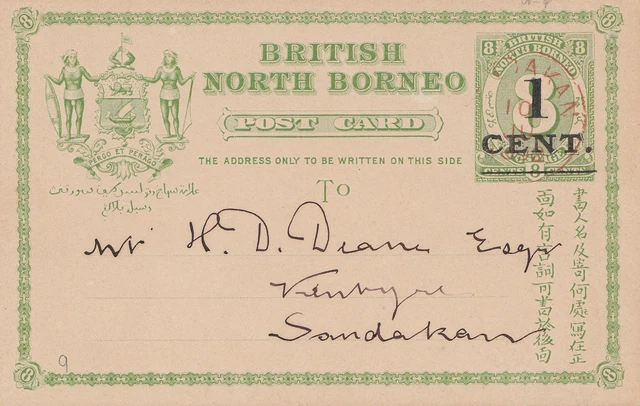 BRITISH
NORTH BORNEO
POST CARD
THE ADDRESS ONLY TO BE WRITTEN ON THIS SIDE
To
PERGO ET PERAGO
8
8
BRITISH
NORTH BORNEO
8
1
CENT.
CENTS 8 CENTS
書人名及寄何處寫在正
面如有言詞可書於後面
Mr H. D. Deane Esqr
Sandakan
8
8
9